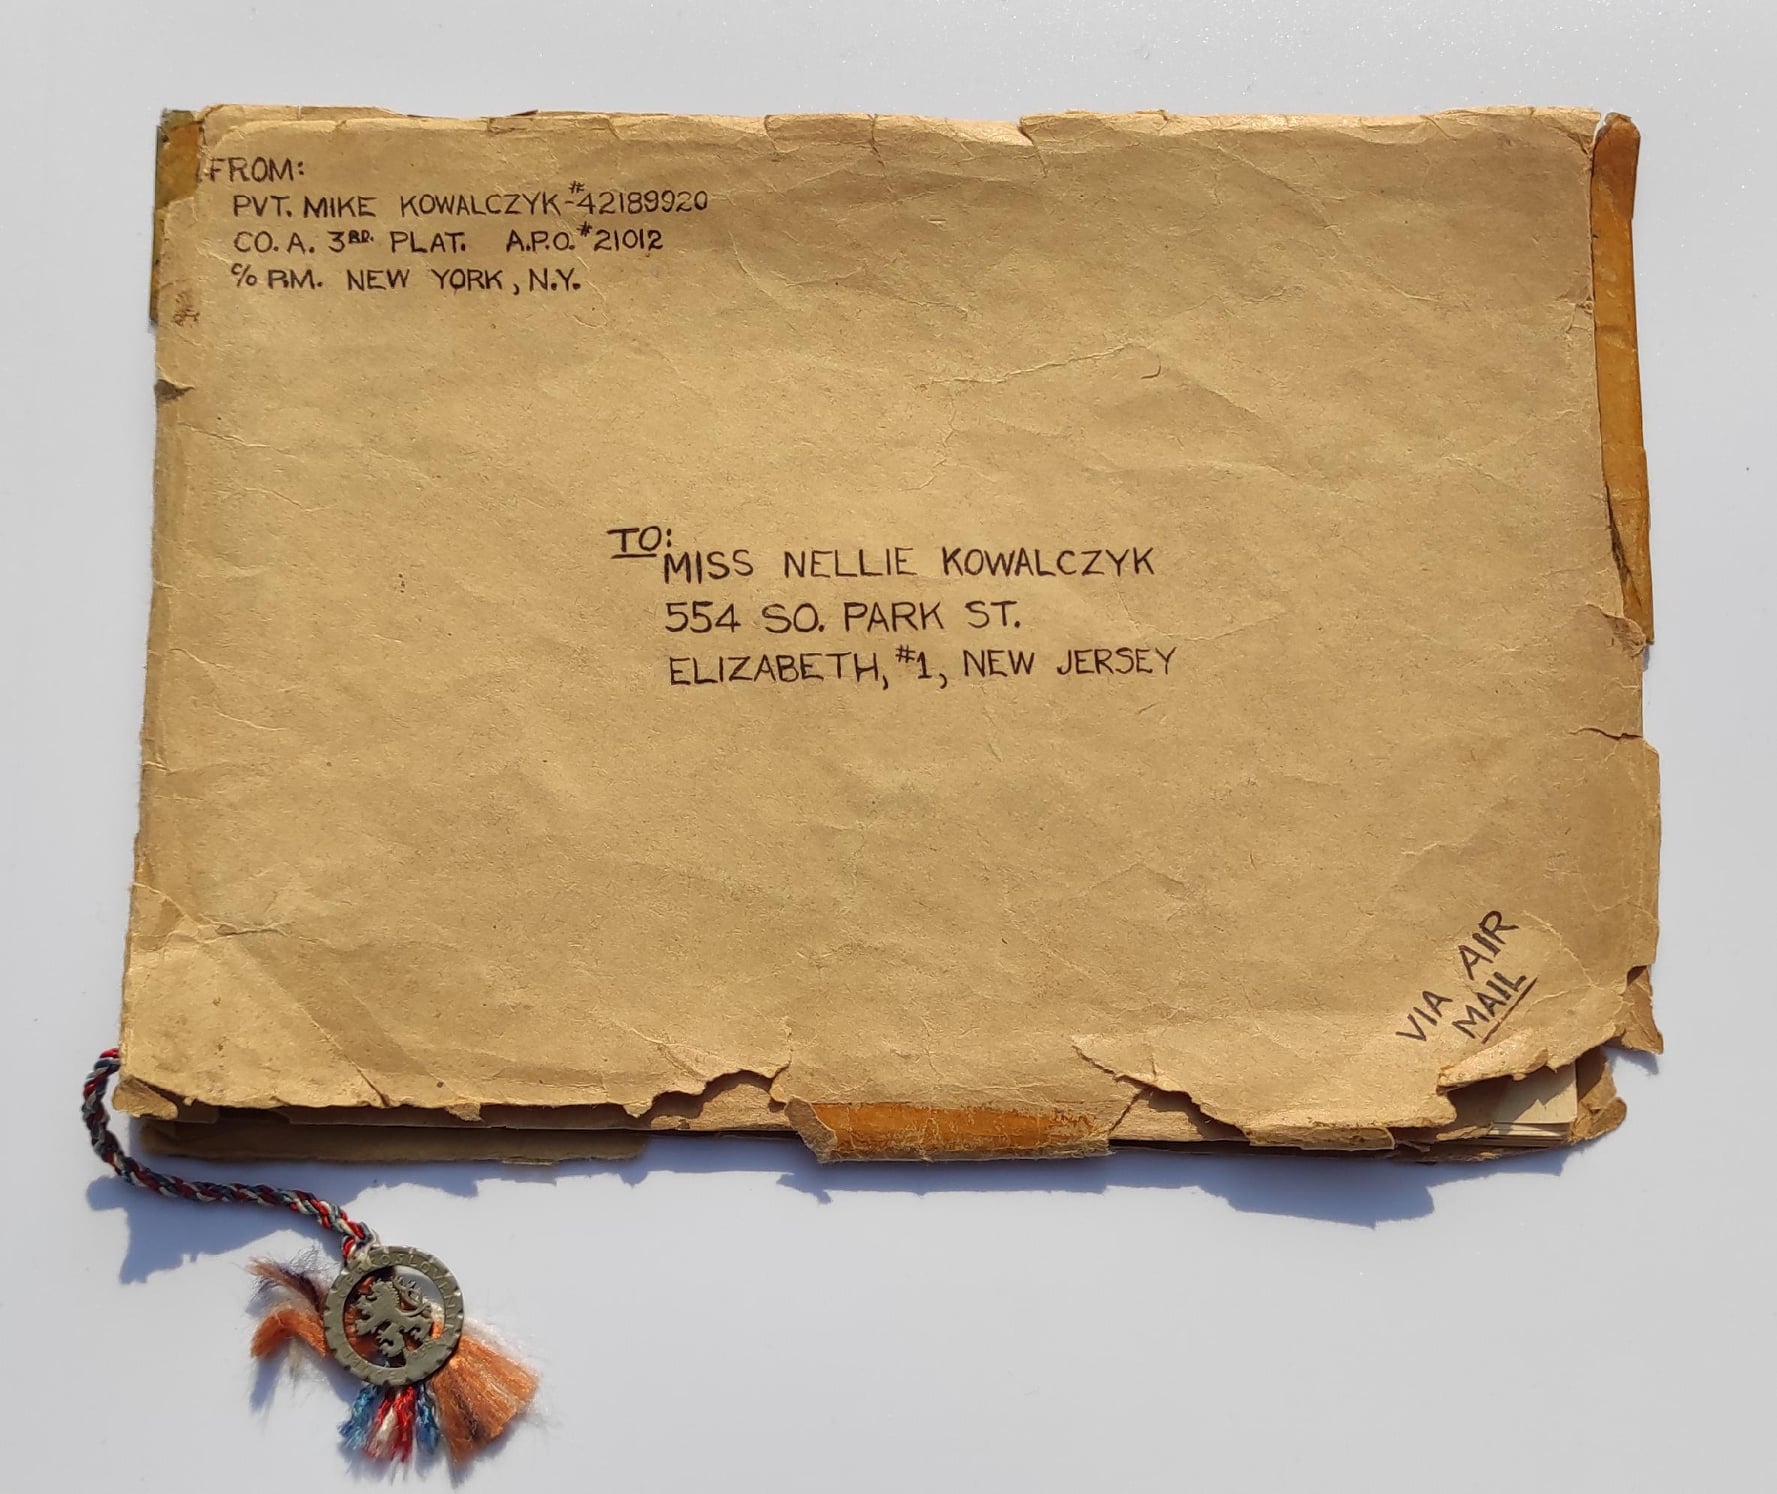 FROM:
PVT. MIKE KOWALCZYK-#42189920
CO. A. 3RD. PLAT. A.P.O. #21012
c/o P.M. NEW YORK, N.Y.
TO:
MISS NELLIE KOWALCZYK
554 SO. PARK ST.
ELIZABETH, #1, NEW JERSEY
VIA AIR
MAIL